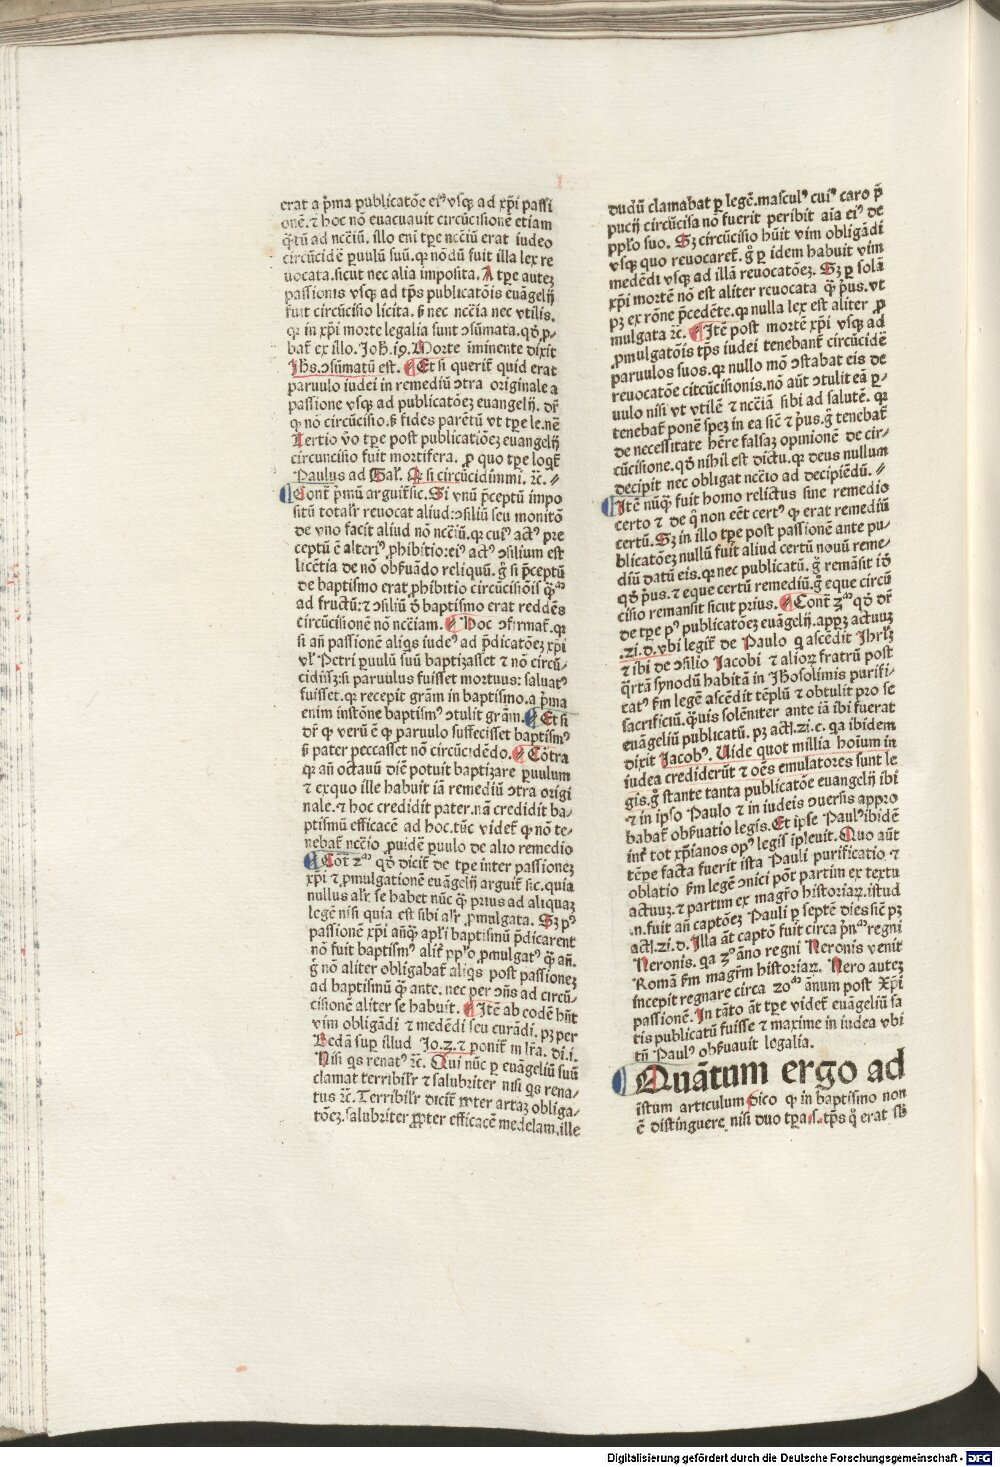 erat a p̃ma publicatõe ei⁹ vsq̃ ad xp̃i passi
onẽ. ⁊ hoc nõ euacuauit circũcisionẽ etiam
q̃tũ ad ncc̃iũ. illo eni tꝑe ncc̃iũ erat iudeo
circũcidẽ ꝑuulũ suũ. qꝛ nõdũ fuit illa lex re
uocata. sicut nec alia imposita. A tꝑe autez
passionis vsq̃ ad tp̃s publicatõis euãgelij
fuit circũcisio licita. ß nec ncc̃ia nec vtilis.
qꝛ in xp̃i morte legalia sunt ↄsũmata. qđ ꝓ-
bat̃ ex illo. Joh̃. i9. Morte ĩminente dixit
Jh̃s. ↄsũmatũ est. ¶ Et si querit̃ quid erat
paruulo iudei in remediũ ↄtra originale a
passione vsq̃ ad publicatõez euangelij. dr̃
ꝙ nõ circũcisio. ß fides parẽtũ vt tꝑe le. nẽ
Tertio v̊o tꝑe post publicatiõez euangelij
circuncisio fuit mortifera. ꝓ quo tꝑe loqt̃
Paulus ad Gal̃. Q̃ si circũcidimmi. ⁊c̃. //
¶ Cont̃ p̃mũ arguit̃ sic. Si vnũ p̃ceptũ impo
situ totalr̃ reuocat aliud: ↄsiliũ seu monitõ
de vno facit aliud nõ ncc̃iũ. qꝛ cui⁹ act⁹ pre
ceptũ ẽ alteri⁹ ꝓhibitio: ei⁹ act⁹ ↄsilium est
licẽtia de nõ obſ̃uãdo reliquũ. g̊ si p̃ceptũ
de baptismo erat ꝓhibitio circũcisiõis q̃ᵐ
ad fructũ: ⁊ ↄsiliũ đ baptismo erat reddẽs
circũcisionẽ nõ ncc̃iam. ¶ Hoc ↄfirmat̃. qꝛ
si añ passionẽ aliqs iude⁹ ad p̃dicatõez xp̃i
vl̃ Petri ꝑuulũ suũ baptizasset ⁊ nõ circũ-
cidisꝫ: si paruulus fuisset mortuus: saluat⁹
fuisset. qꝛ recepit grãm in baptismo. a p̃ma
enim instõne baptism⁹ ↄtulit grãm. ¶ Et si
dr̃ ꝙ verũ ẽ ꝙ paruulo suffecisset baptism⁹
ß pater peccasset nõ circũcidẽdo. ¶ Cõtra
qꝛ añ octauũ diẽ potuit baptizare ꝑuulum
⁊ exquo ille habuit iã remediũ ↄtra origi
nale. ⁊ hoc credidit pater. nã credidit ba-
ptismũ efficacẽ ad hoc. tũc videt̃ ꝙ nõ te-
nebat̃ ncc̃io ꝓuidẽ ꝑuulo de alio remedio
¶ Cõt̃ zᵐ qđ dicit̃ de tꝑe inter passionez
xp̃i ⁊ ꝓmulgationẽ euãgelij arguit̃ sic. quia
nullus alr̃ se habet nũc q̃ prius ad aliquaz
legẽ nisi quia est sibi alr̃ ꝓmulgata. Sz p⁹
passionẽ xp̃i añq̃ apl̃i baptismũ p̃dicarent
nõ fuit baptism⁹ alit̃ pp̃lo ꝓmulgat⁹ q̃ añ.
g̊ nõ aliter obligabat̃ aliqs post passionez
ad baptismũ q̃ ante. nec per ↄñs ad circũ-
cisionẽ aliter se habuit. ¶ Itẽ ab eodẽ hñt
vim obligãdi ⁊ medẽdi seu curãdi. pꝫ per
Bedã suꝑ illud Jo. z. ⁊ ponit̃ in lr̃a. di. i.
Nisi qs renat⁹ ⁊c̃. Qui nũc ꝑ euãgeliũ suũ
clamat terribilr̃ ⁊ salubriter nisi qs rena-
tus ⁊c̃. Terribilr̃ dicit ꝓpter artaz obliga-
tõez. salubriter ꝓpter efficacẽ medelam, ille
dudũ clamabat ꝑ legẽ. mascul⁹ cui⁹ caro p̃
pucij circũcisa nõ fuerit peribit aĩa ei⁹ de
pp̃lo suo. Sz circũcisio hũit vim obligãdi
vsq̃ quo reuocaret̃. g̊ ꝑ idem habuit vim
medẽdi vsq̃ ad illã reuocatõez. Sz ꝑ solã
xp̃i mortẽ nõ est aliter reuocata q̃ p̃us. vt
pꝫ ex rõne p̃cedẽte. qꝛ nulla lex est aliter ꝓ
mulgata ⁊c̃. ¶ Itẽ post mortẽ xp̃i vsq̃ ad
ꝓmulgatõis tp̃s iudei tenebant̃ circũcidẽ
paruulos suos. qꝛ nullo mõ ↄstabat eis de
reuocatõe citcũcisionis. nõ aũt ↄtulit eã ꝑ-
uulo nisi vt vtilẽ ⁊ ncc̃iã sibi ad salutẽ. qꝛ
tenebat̃ ponẽ spez in ea sic̃ ⁊ p̃us. g̊ tenebat̃
de necessitate hẽre falsaz opinionẽ de cir-
cũcisione. qđ nihil est dictu. qꝛ deus nullum
decipit nec obligat ncc̃io ad decipiẽdũ. //
¶ Itẽ nũq̃ fuit homo relictus sine remedio
certo ⁊ de q̊ non eẽt cert⁹ ꝙ erat remediũ
certũ. Sz in illo tꝑe post passionẽ ante pu-
blicatõez nullũ fuit aliud certũ nouũ reme-
diũ datũ eis. qꝛ nec publicatũ. g̊ remãsit iđ
qđ p̃us. ⁊ eque certũ remediũ. g̊ eque circũ
cisio remansit sicut prius. ¶ Cont̃ zᵐ qđ dr̃
de tꝑe p⁹ publicatõez euãgelij. appꝫ actuuꝫ
.zi. d. vbi legit̃ de Paulo q ascẽdit Jhrlꝫ
⁊ ibi de ↄsilio Jacobi ⁊ alioꝝ fratrũ post
q̃rtã synodũ habitã in Jh̃osolimis purifi-
cat⁹ ẜm legẽ ascẽdit tẽplũ ⁊ obtulit pro se
sacrificiũ. q̃uis solẽniter ante iã ibi fuerat
euãgeliũ publicatũ. pꝫ act. zi. c. qa ibidem
dixit Jacob⁹. Uide quot millia hoĩum in
iudea crediderũt ⁊ oẽs emulatores sunt le
gis. g̊ stante tanta publicatõe euangelij ibi
⁊ in ipso Paulo ⁊ in iudeis ↄuersis appro
babat̃ obſ̃uatio legis. Et ipse Paul⁹ ibidẽ
int̃ tot xp̃ianos op⁹ legis ipleuit. Quo aũt
tẽpe facta fuerit ista Pauli purificatio ⁊
oblatio ẜm legẽ ↄnici põt partim ex textu
actuuꝫ. ⁊ partim ex magr̃o historiaꝝ. istud
.n. fuit añ captõez Pauli ꝑ septẽ dies sic̃ pꝫ
act. zi. d. Illa ãt captõ fuit circa p̃nᵐ regni
Neronis. qa z⁰ ãno regni Neronis venit
Romã ẜm magr̃m historiaꝝ. Nero autez
incepit regnare circa zoᵐ ãnum post Xp̃i
passionẽ. In tãto ãt tꝑe videt̃ euãgeliũ sa
tis publicatũ fuisse ⁊ maxime in iudea vbi
tñ Paul⁹ obſ̃uauit legalia.
¶ Quãtum ergo ad
istum articulum dico ꝙ in baptismo non
ẽ distinguere nisi duo tꝑa. s. tp̃s q̊ erat sß
Digitalisierung gefördert durch die Deutsche Forschungsgemeinschaft - DFG